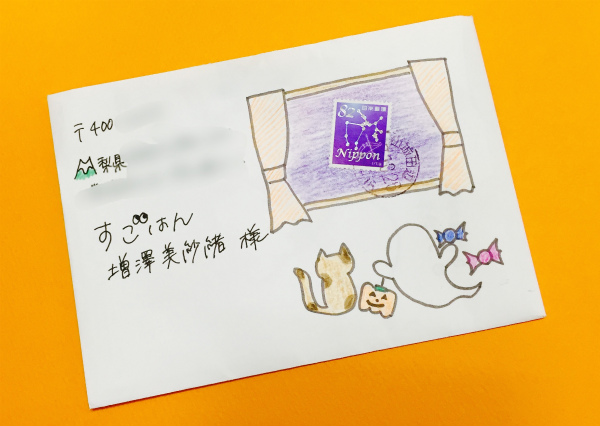 〒400
梨県
すごはん
増澤美紗緒 様
82 日本郵便
Nippon